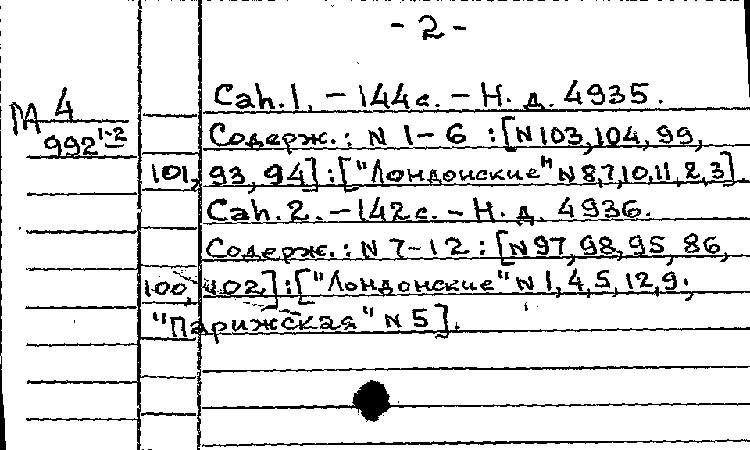 - 2 -
М 4
992 1-2
Cah. 1. – 144 с. – Н. д. 4935.
Содерж.: N 1–6 : [N 103, 104, 99,
101, 93, 94] : ["Лондонские" N 8, 7, 10, 11, 2, 3].
Cah. 2. – 142 с. – Н. д. 4936.
Содерж.: N 7–12 : [N 97, 98, 95, 86,
100, 102] : ["Лондонские" N 1, 4, 5, 12, 9;
"Парижская" N 5].